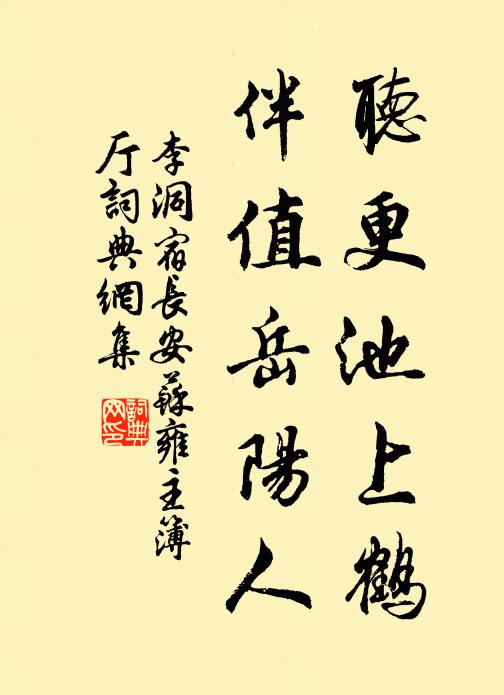 聽更池上鶴
伴值岳陽人
李洞宿長安蘇雍主簿
厅詞典網集
詞典網印